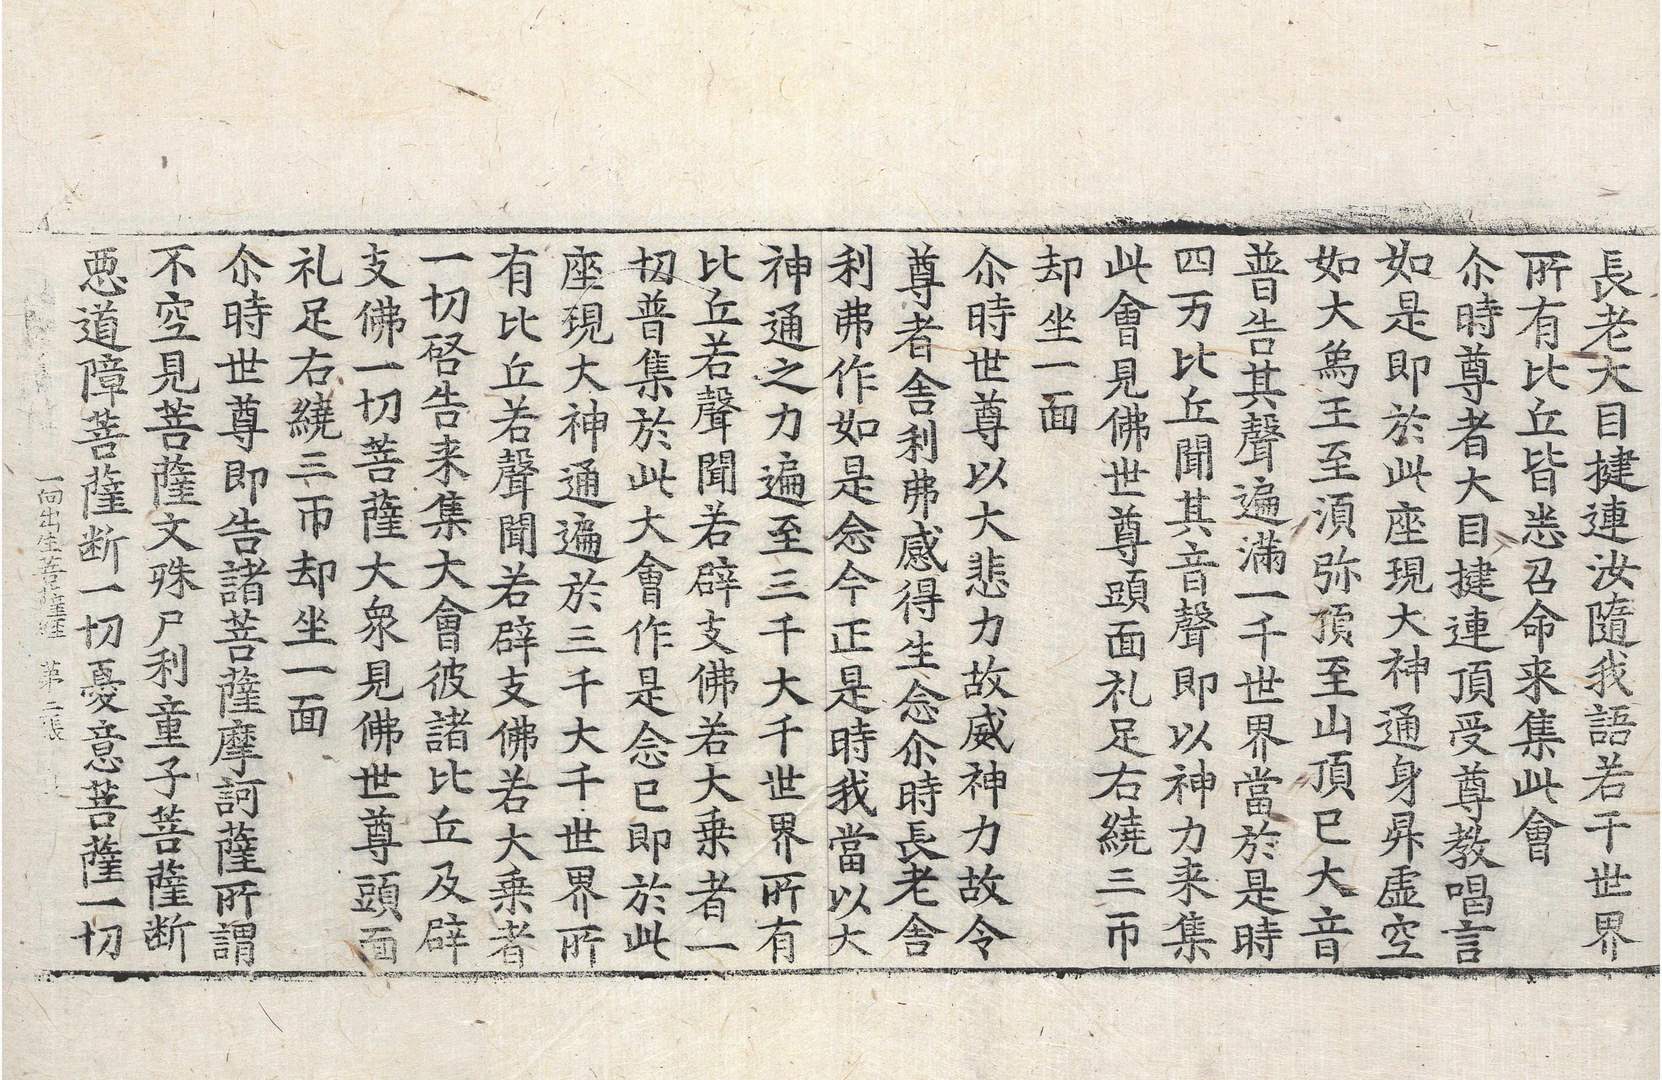 長老大目揵連汝隨我語若干世界
所有比丘皆悉召命来集此會
尒時尊者大目揵連頂受尊教唱言
如是即於此座現大神通身昇虛空
如大鴈王至湏弥頂至山頂已大音
普告其聲遍滿一千世界當於是時
四万比丘聞其音聲即以神力来集
此會見佛世尊頭面礼足右繞三帀
却坐一面
尒時世尊以大悲力故威神力故令
尊者舍利弗感得生念尒時長老舍
利弗作如是念今正是時我當以大
神通之力遍至三千大千世界所有
比丘若聲聞若辟支佛若大乗者一
切普集於此大會作是念已即於此
座現大神通遍於三千大千世界所
有比丘若聲聞若辟支佛若大乗者
一切啓告来集大會彼諸比丘及辟
支佛一切菩薩大衆見佛世尊頭面
礼足右繞三帀却坐一面
尒時世尊即告諸菩薩摩訶薩所謂
不空見菩薩文殊尸利童子菩薩断
惡道障菩薩断一切憂意菩薩一切
一向出生菩薩經 第二張